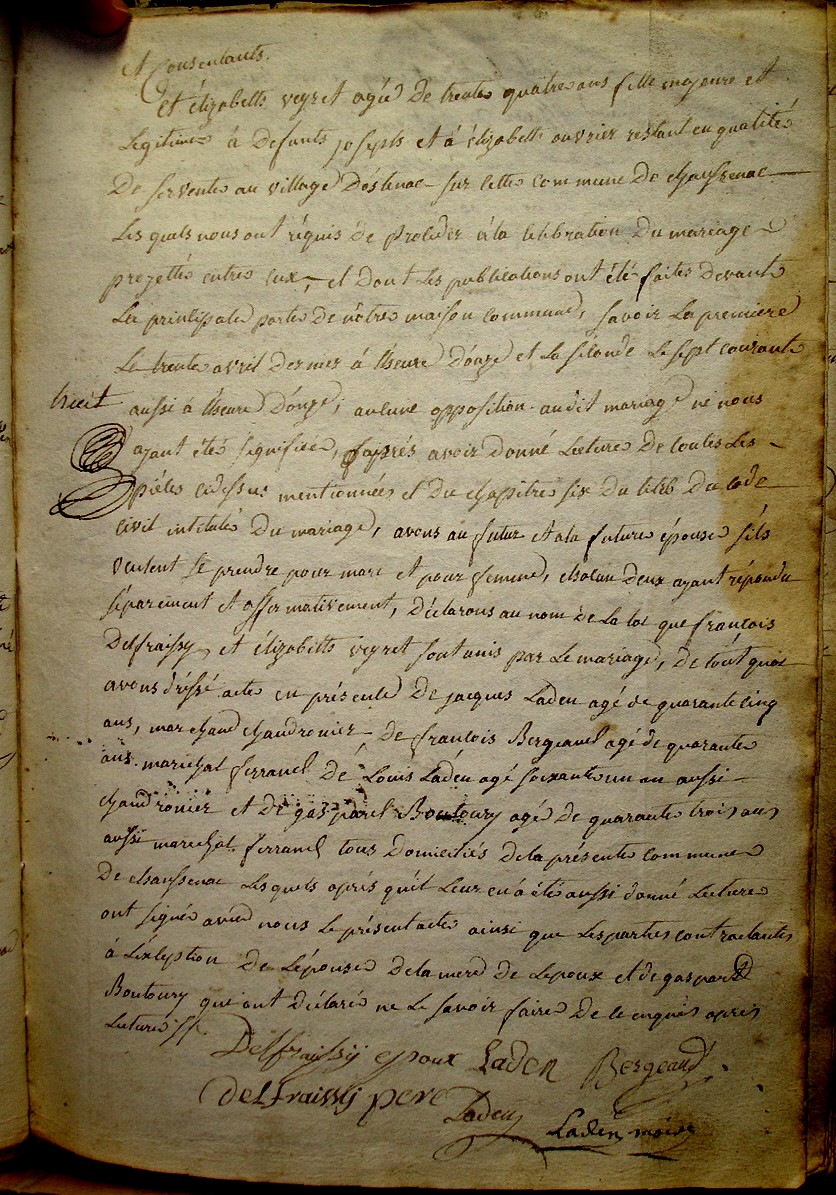 et Consentants.
Et élizabetts veyret agée de trente quatre ans fille majeure et
Legitime à defunts josepts et à élizabett ouvrier restant en qualité
De servente au village Dostenac sur cette commune De chaussenac
Les quels nous ont réquis de proceder à la celebration Du mariage
projetté entre eux, et Dont Les publications ont été faites devant
La principale porte De notre maison commune, savoir La premiere
Le trente avril dernier à l'heure D'onze et La seconde Le sept courant
huit aussi à l'heure D'onze, aucune opposition audit mariage ne nous
ayant été signifiée, après avoir donné Lecture De toutes Les
pièces cidessus mentionnées et du chapitre six du titre Du code
civil intitulé Du mariage, avons au futur et à la future épouse s'ils
veulent se prendre pour mari et pour femme, chacun deux ayant répondu
séparément et affirmativement, Déclarons au nom de La loi que françois
Delfraissy et élizabetts veyret sont unis par Le mariage, De tout quoi
avons dréssé acte en présence De jacques Laden agé de quarante cinq
ans, marchand chaudronier De francois Bergeaud agé de quarante
ans marechal ferrand de Louis Laden agé soixante un an aussi
chaudronier et de gaspard Boutoury agé de quarante trois ans
aussi marechal ferrand tous Domiciliés de la présente commune
De chaussenac Lesquels après qu'il Leur en a été aussi donné Lecture
ont signé avec nous Le présent acte ainsi que Les parties contractantes
à L'exception De L'épouse De la mere de L'epoux et de gaspard
Boutoury qui ont déclaré ne Le savoir faire De ce enquis après
Lecture
Delfraissy epoux Laden Bergeaud
delfraissy pere Laden
Laden maire